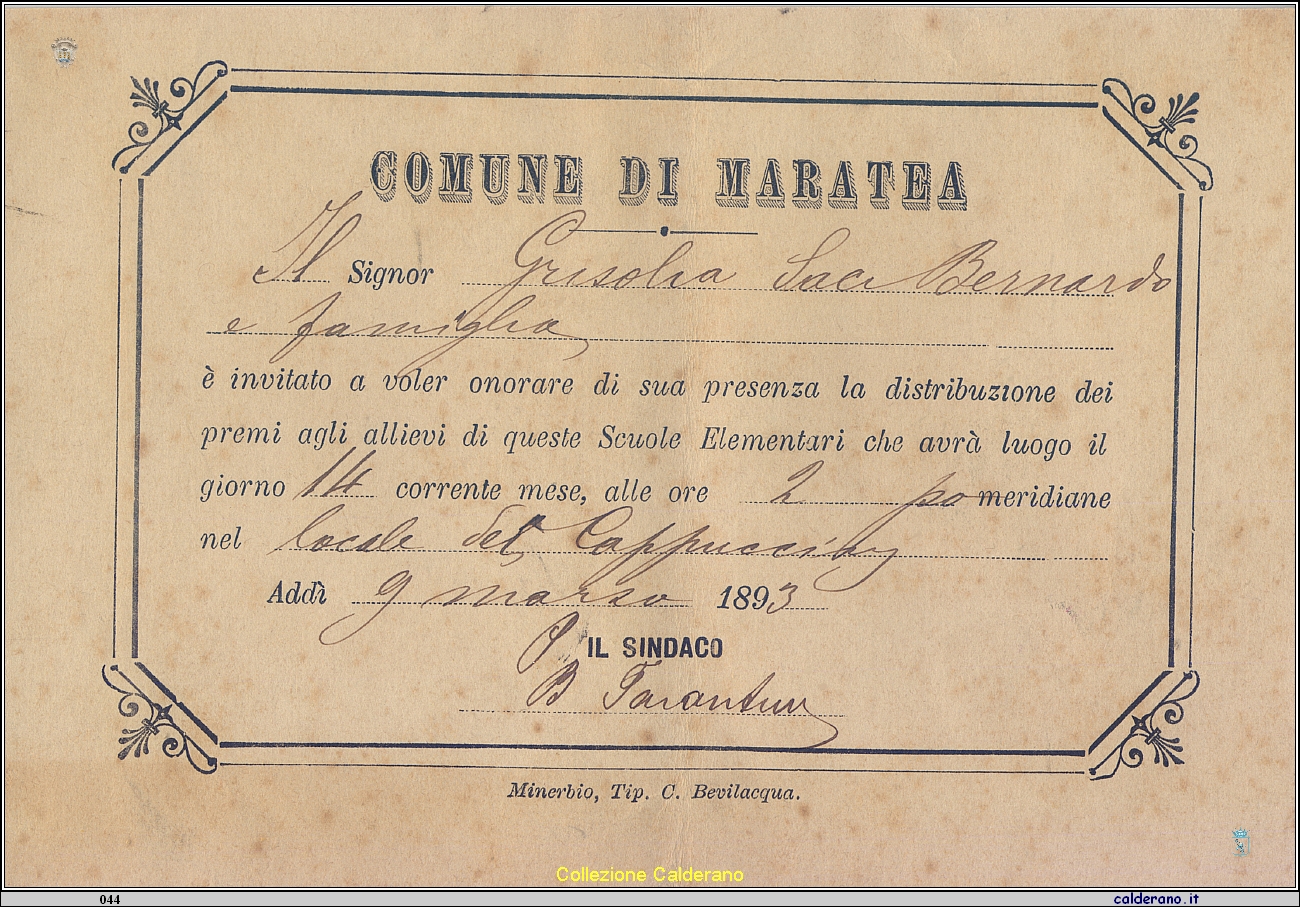 COMUNE DI MARATEA
Il Signor Grisolia Bernardo
e famiglia
è invitato a voler onorare di sua presenza la distribuzione dei
premi agli allievi di queste Scuole Elementari che avrà luogo il
giorno 14 corrente mese, alle ore 2 pomeridiane
nel locale dei Cappuccini
Addì 9 marzo 1893
IL SINDACO
B
Minerbio, Tip. C. Bevilacqua.
Collezione Calderano
044
calderano.it